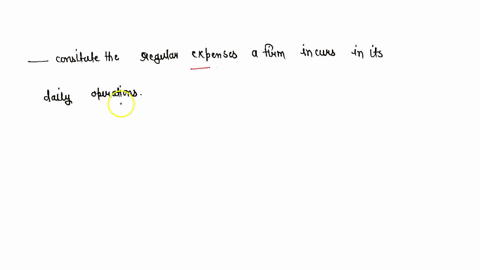 ___ consitute the regular expenses a firm incurs in its
daily operations.